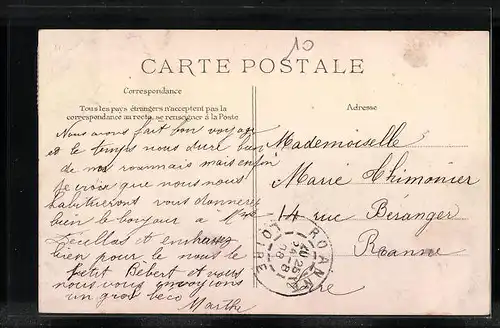 10
CARTE POSTALE
Correspondance
Tous les pays étrangers n'acceptent pas la
correspondance au recto, se renseigner à la Poste
Adresse
Nous avons fait bon voyage
et le temps nous dure bien
de mais enfin
Je crois que nous nous
habituerons vous donnerez
bien le bonjour à Mme
et
bien pour le nous le
petit Bébert et vous
nous vous envoyions
un gros beco
Marthe
Mademoiselle
Marie Chimonier
14 rue Béranger
Roanne
Loire
ROANNE
LOIRE